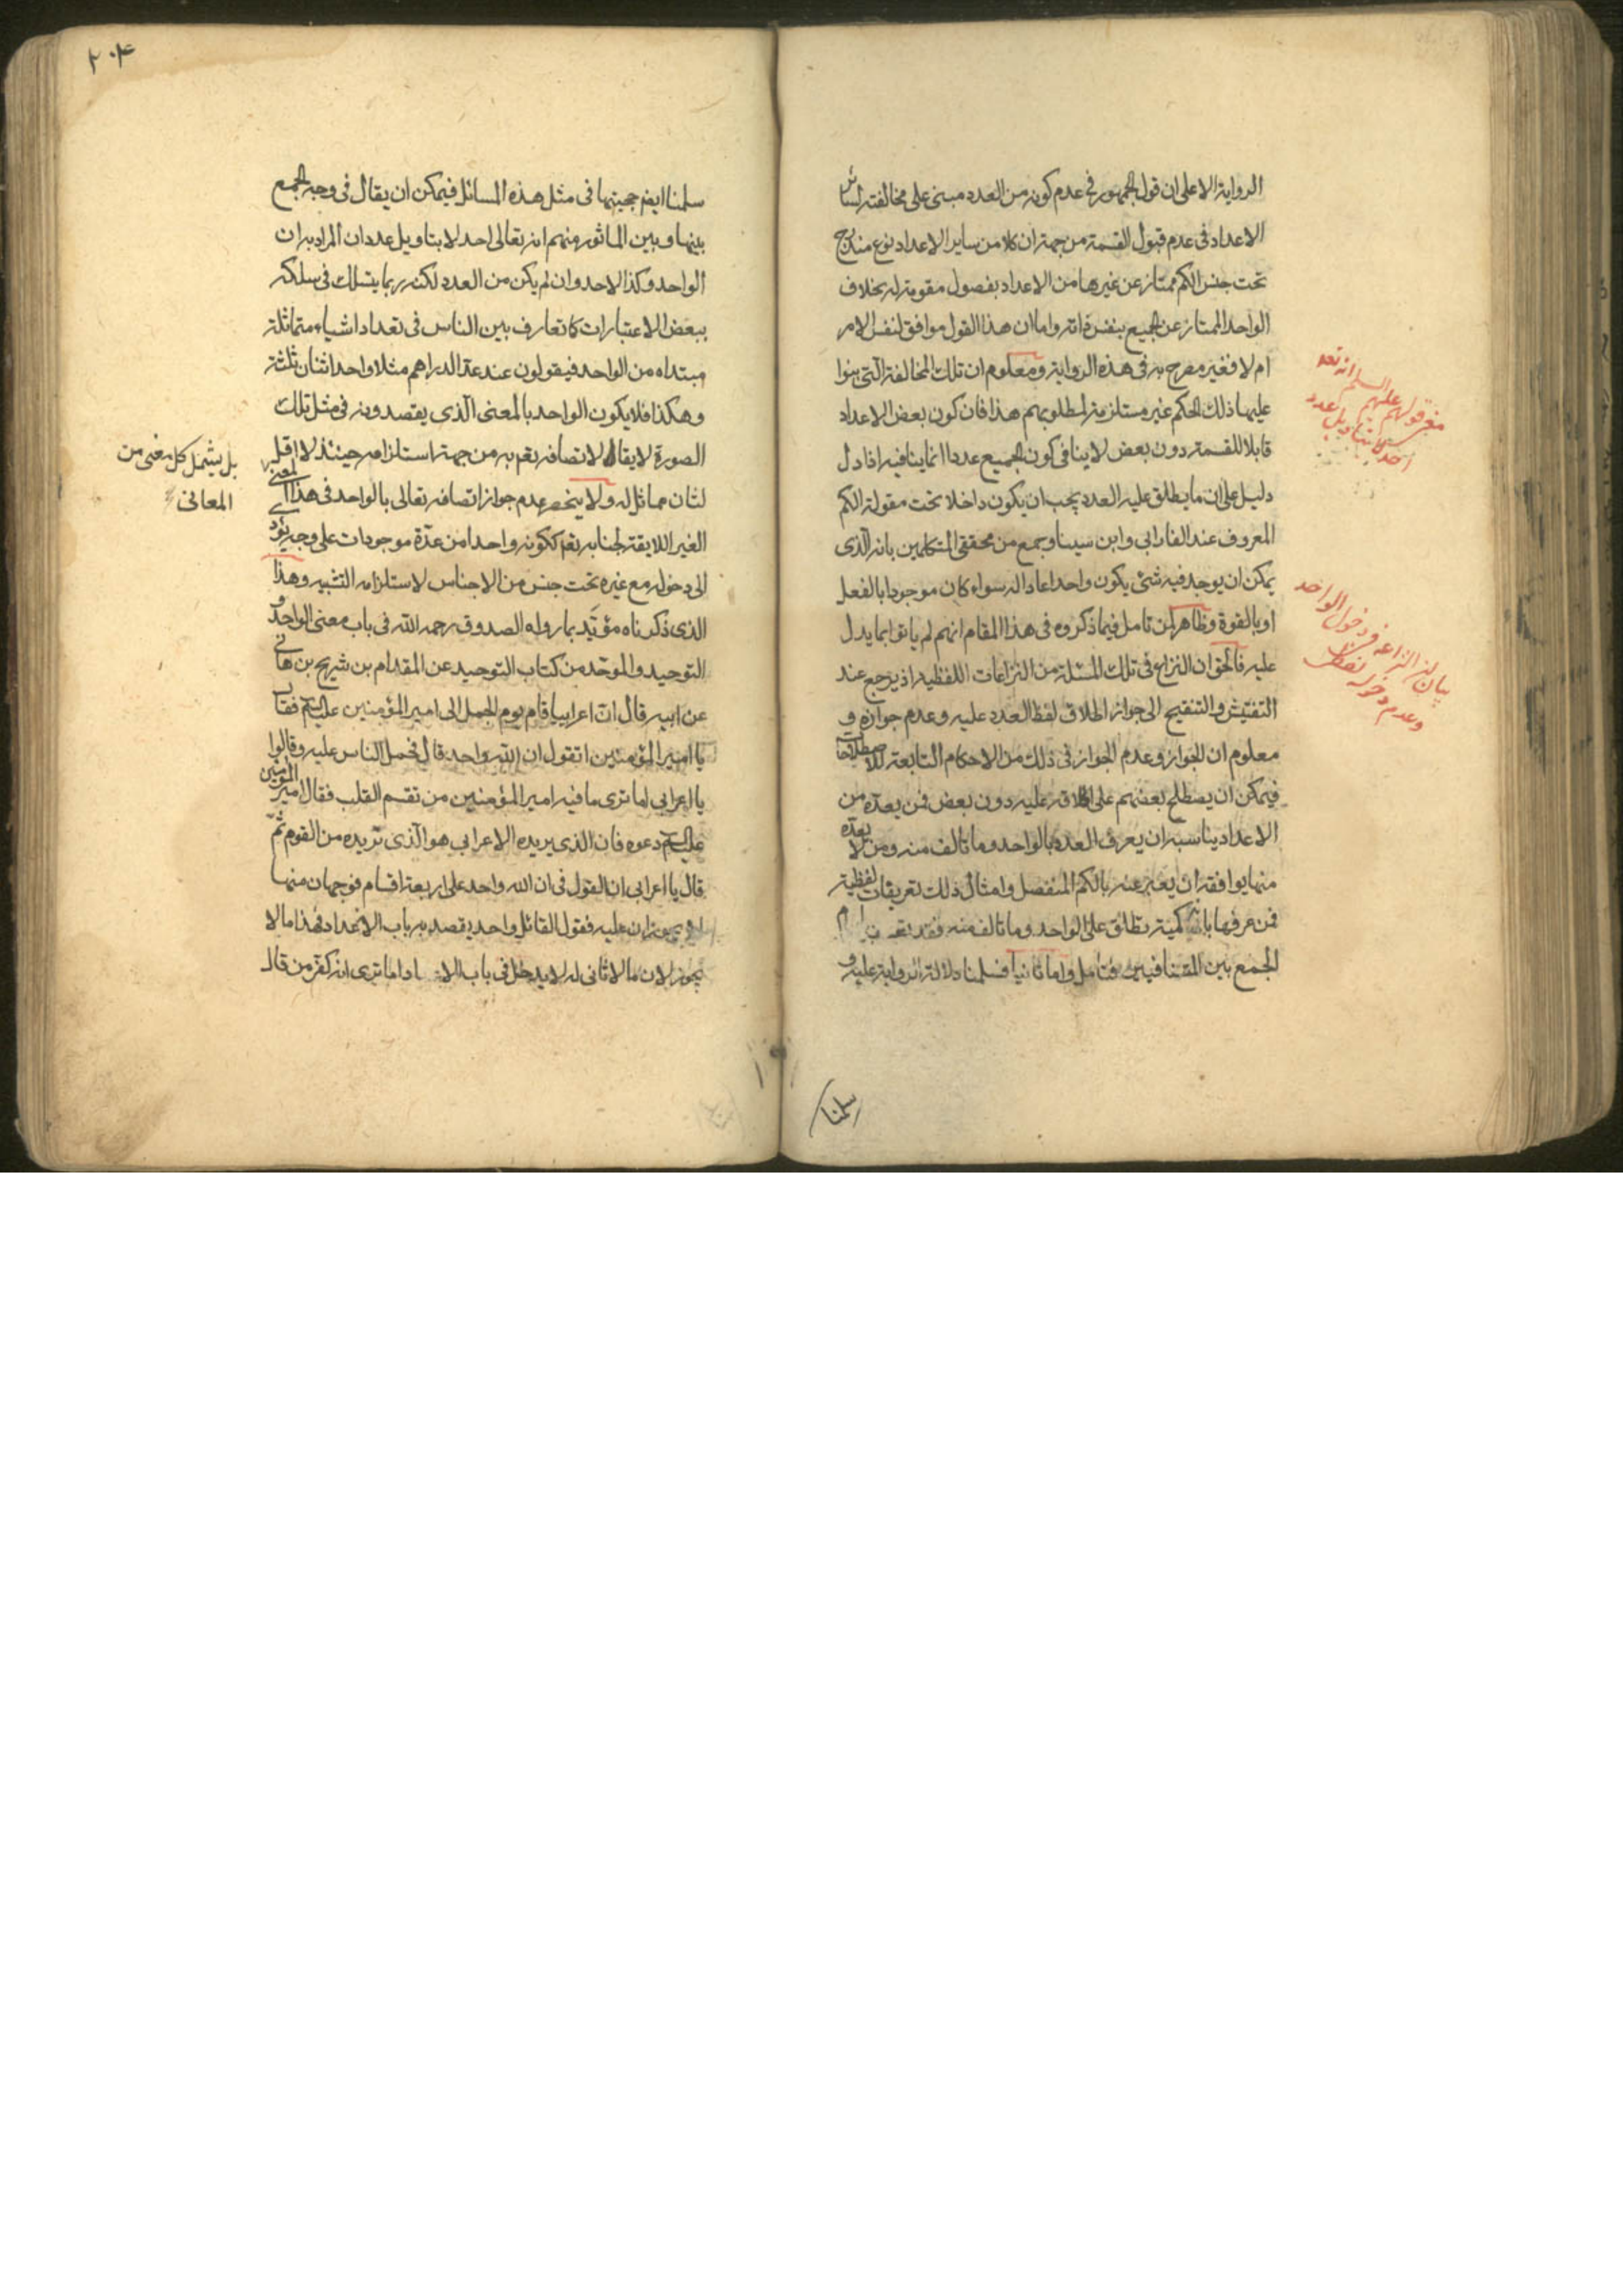 الرواية الا على ان قول الجمهور فى عدم كونه من العدد مبنى على مخالفته لسائر
الاعداد فى عدم قبول القسمة من جهة ان كلا من ساير الاعداد نوع مندرج
تحت جنس الكم ممتاز عن غيرها من الاعداد بفصول مقومة له بخلاف
الواحد الممتاز عن الجميع بنفس ذاته واما ان هذا القول موافق لنفس الامر
ام لا فغير مصرح به فى هذه الرواية ومعلوم ان تلك المخالفة التى بنوا
عليها ذلك الحكم غير مستلزمة لمطلوبهم هذا فان كون بعض الاعداد
قابلا للقسمة دون بعض لا ينافى كون الجميع عددا انما ينافيه اذا دل
دليل على ان ما يطلق عليه العدد يجب ان يكون داخلا تحت مقولة الكم
المعروف عند الفارابى وابن سينا وجمع من محققى المتكلمين بانه الذى
يمكن ان يوجد فيه شئ يكون واحدا عادا له سواء كان موجودا بالفعل
او بالقوة وظاهر لمن تامل فيما ذكروه فى هذا المقام انهم لم ياتوا بما يدل
عليه فالحق ان النزاع فى تلك المسئلة من النزاعات اللفظية اذ يرجع عند
التفتيش والتنقيح الى جواز اطلاق لفظ العدد عليه وعدم جوازه و
معلوم ان الجواز وعدم الجواز فى ذلك من الاحكام التابعة للاصطلاحات
فيمكن ان يصطلح بعضهم على اطلاقه عليه دون بعض فمن يعده من
الاعداد يناسبه ان يعرف العدد بالواحد وما تالف منه ومن لا يعده
منها يوافقه ان يعبر عنه بالكم المنفصل وامثال ذلك تعريفات لفظية
فمن عرفها بانه كمية تطلق على الواحد وما تالف منه فقد
الجمع بين المتنافيين فتامل واما ثانيا فسلمنا دلالة الرواية عليه و
سلمنا
مغز قولهم عليهم السلم انه تعه
احد لا بتاويل عدد
بيان لنزاعه فى دخول الواحد
وعدم دخوله لفظى
٢٠٤
سلمنا ايضا حجيتها فى مثل هذه المسائل فيمكن ان يقال فى وجه الجمع
بينها وبين الماثور منهم انه تعالى احد لا بتاويل عدد ان المراد به ان
الواحد وكذا الاحد وان لم يكن من العدد لكنه ربما ينسلك فى سلكه
ببعض الاعتبارات كما تعارف بين الناس فى تعداد اشياء متماثلة
مبتداه من الواحد فيقولون عند عد الدراهم مثلا واحد اثنان ثلثة
وهكذا فلا يكون الواحد بالمعنى الذى يقصدونه فى مثل تلك
الصورة لا يقال لا تصافه تعم به من جهة استلزامه حينئذ لا اقل
لثان مماثل له ولا ينحصر عدم جواز اتصافه تعالى بالواحد فى هذا المعنى
بل يشمل كل معنى من
المعانى
الغير اللايقة لجنابه تعم ككونه واحدا من عدة موجودات على وجه يؤد
الى دخوله مع غيره تحت جنس من الاجناس لاستلزامه التشبيه وهذا
الذى ذكرناه مؤيد بما رواه الصدوق رحمه الله فى باب معنى الواحد و
التوحيد والموحد من كتاب التوحيد عن المقدام بن شريح بن هانى
عن ابيه قال ان اعرابيا قام يوم الجمل الى امير المؤمنين عليه السلم فقال
يا امير المؤمنين اتقول ان الله واحد قال فحمل الناس عليه وقالوا
يا اعرابى اما ترى ما فيه امير المؤمنين من تقسم القلب فقال امير المؤمنين
عليه السلم دعوه فان الذى يريده الاعرابى هو الذى نريده من القوم ثم
قال يا اعرابى ان القول فى ان الله واحد على اربعة اقسام فوجهان منها
لا يجوزان عليه فقول القائل واحد يقصد به باب الاعداد فهذا ما لا
يجوز لان ما لا ثانى له لا يدخل فى باب الاعداد اما ترى انه كفر من قال